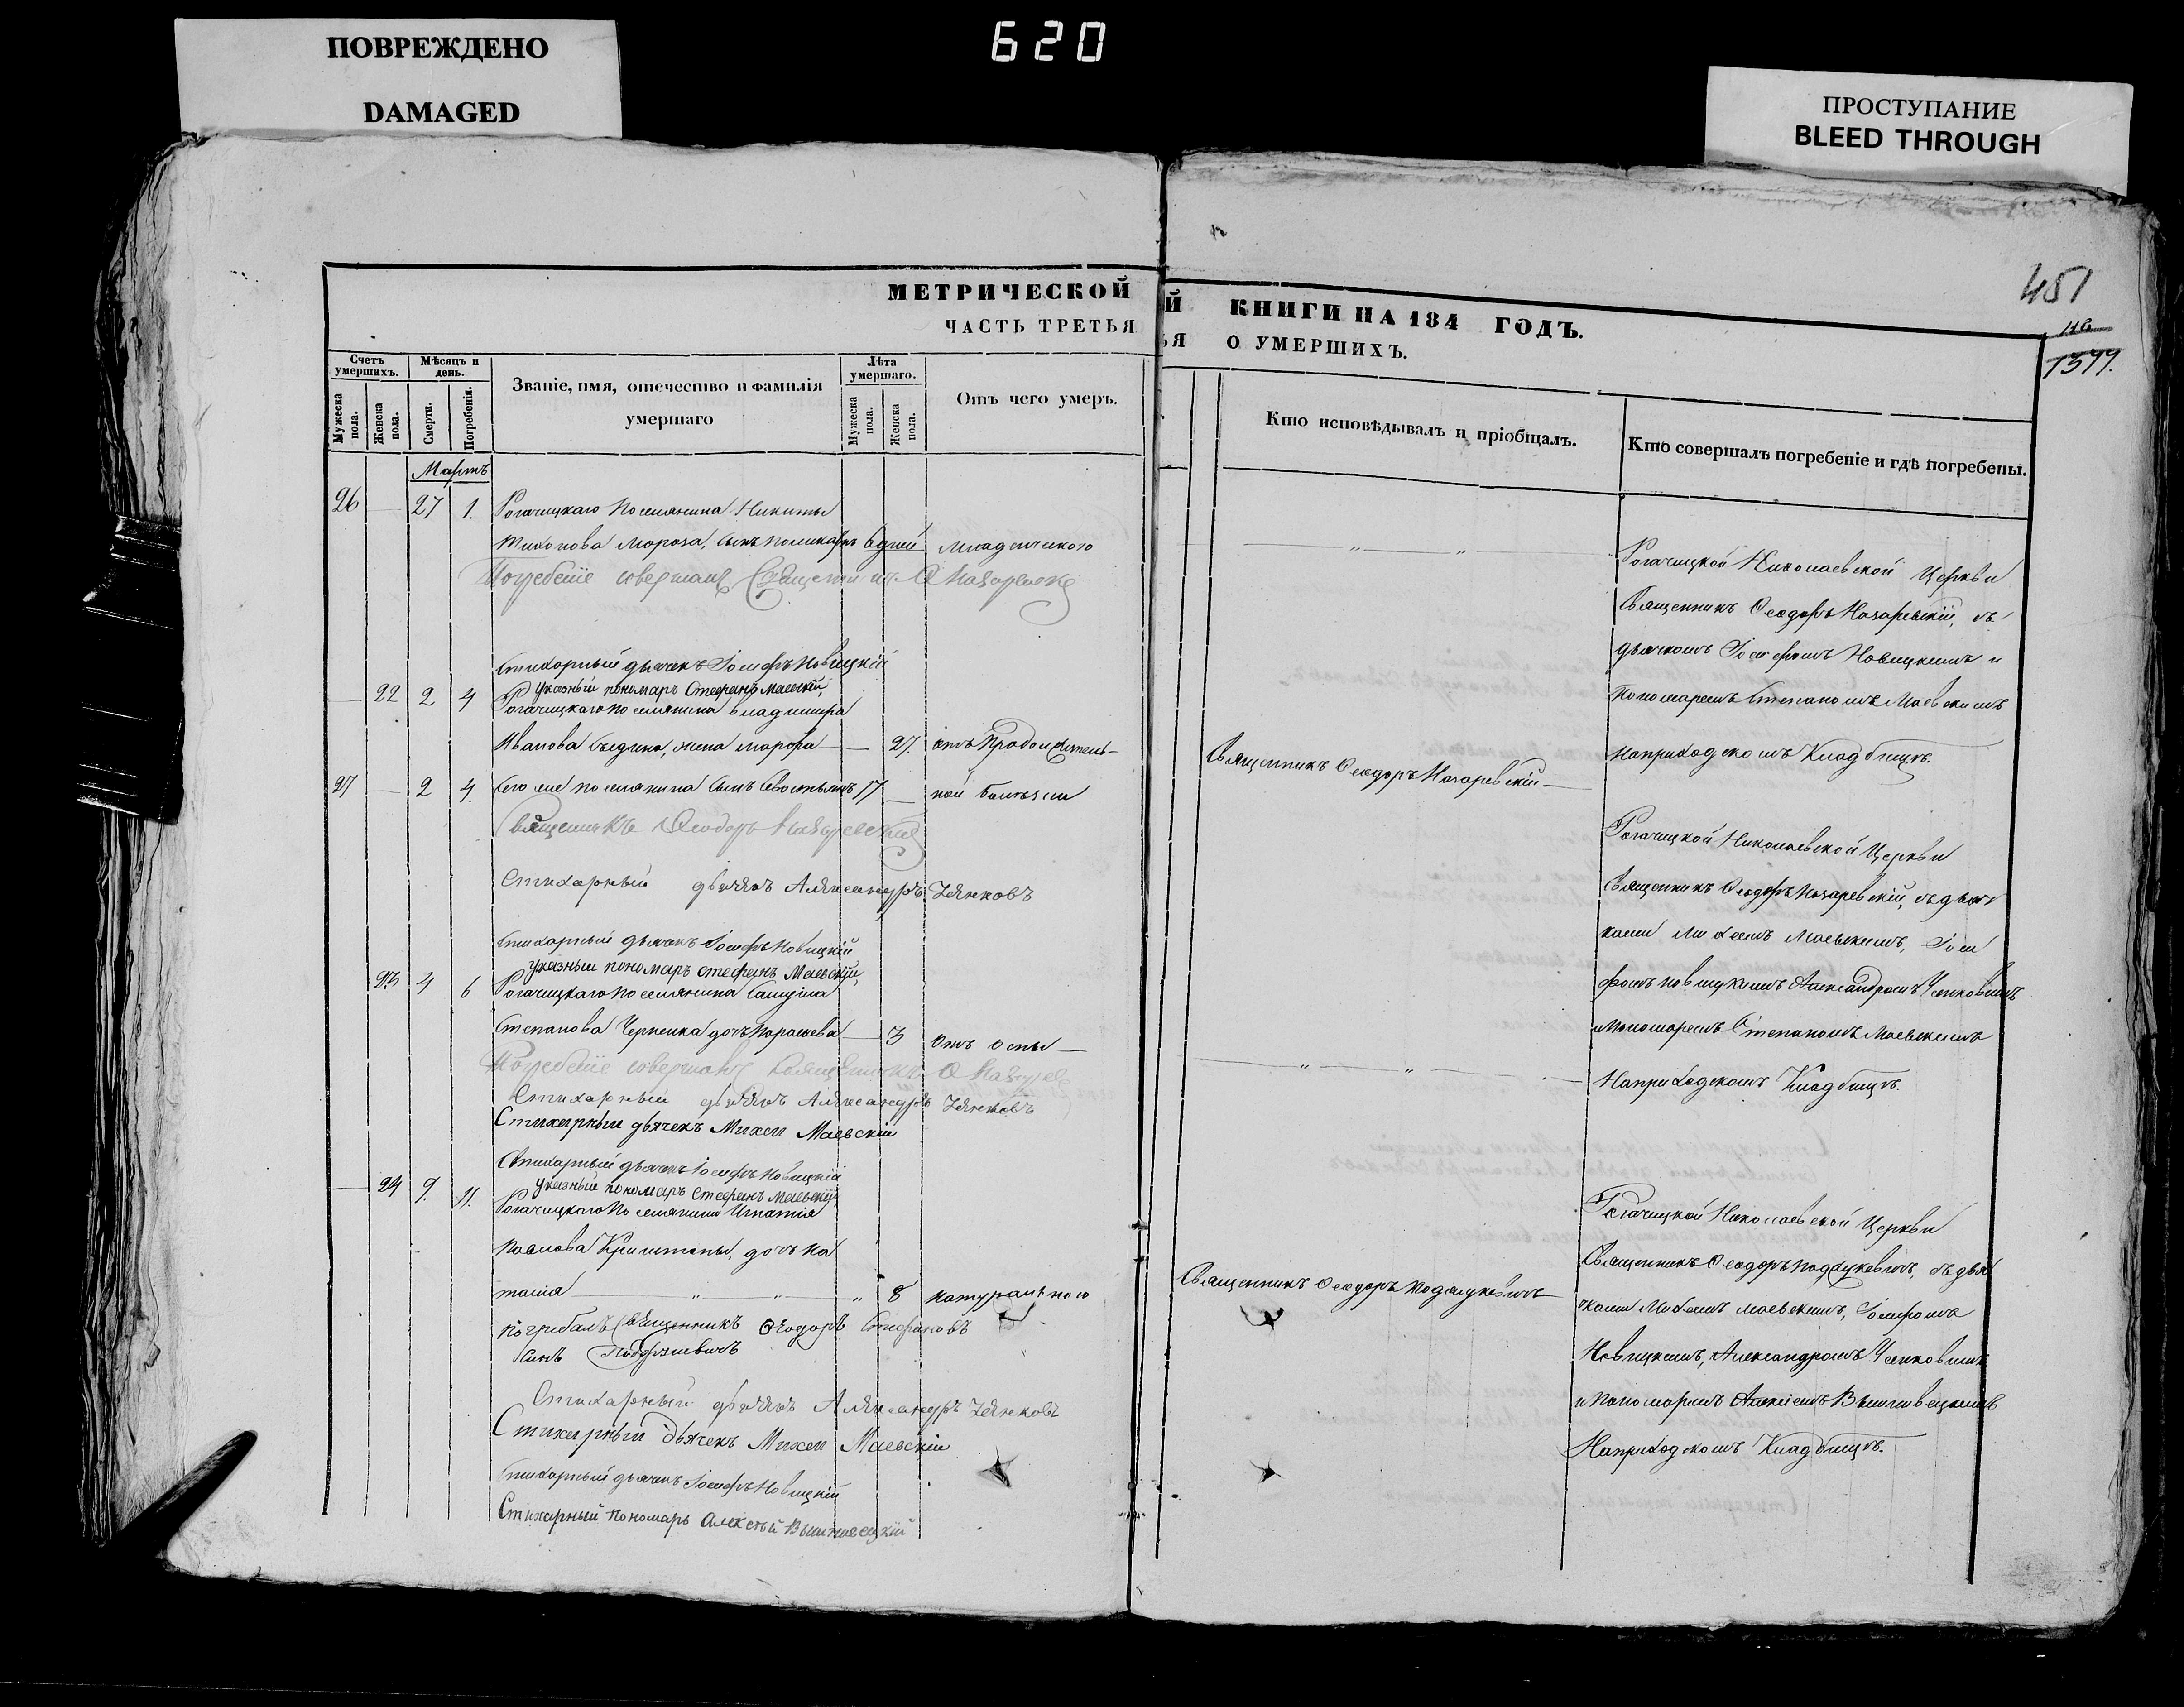 ПОВРЕЖДЕНО
DAMAGED
620
ПРОСТУПАНИЕ
BLEED THROUGH
451
116
1399.
МЕТРИЧЕСКОЙ
ЧАСТЬ ТРЕТЬЯ
Й КНИГИ НА 184 ГОДЪ.
ЬЯ О УМЕРШИХЪ.
Счетъ умершихъ.
Мужеска пола.
Женска пола.
Мѣсяцъ и день.
Смерти.
Погребенія.
Званіе, имя, отечество и фамилія
умершаго
Лѣта умершаго.
Мужеска пола.
Женска пола.
Отъ чего умеръ.
Кто исповѣдывалъ и пріобщалъ.
Кто совершалъ погребеніе и гдѣ погребены.
Мартъ
26 — 27 1. Рогачицкаго поселянина Никиты
Тихонова Мороза, сынъ Поликарпъ 6 дней младенческою
Погребеніе совершалъ Священникъ Ѳ Назаревскій
Стихарный дьячекъ Іосифъ Новицкій
Указный пономаръ Стефанъ Маевскій,
— 22 2 4 Рогачицкаго поселянина Владимира
Иванова жена Марфа — 27. отъ продолжитель-
27 — 2 4. Сего же поселянина сынъ 17 — ной болѣзни
Священникъ Ѳеодоръ Назаревскій
Стихарный дьячекъ Александръ
Стихарный дьячекъ Іосифъ Новицкій
Указный пономаръ Стефанъ Маевскій,
23 4 6 Рогачицкаго поселянина
Степанова Черненка дочь — 3 отъ оспы —
Погребеніе совершалъ Священникъ Ѳ
Стихарный дьячекъ Александръ
Стихарный дьячекъ Михей Маевскій
Стихарный дьячекъ Іосифъ Новицкій
Указный пономаръ Стефанъ Маевскій
— 24 9. 11. Рогачицкаго поселянина Игнатія
Павлова дочь На
талія — " — " — " 8 натуральною
погребалъ Священникъ Ѳеодоръ Стефановъ
сынъ
Стихарный дьячекъ Александръ
Стихарный дьячекъ Михей Маевскій
Стихарный дьячекъ Іосифъ Новицкій
Стихарный пономаръ Алексѣй Вышневецкій
— " — " —
Священникъ Ѳеодоръ Назаревскій —
— " — " —
Священникъ Ѳеодоръ
Рогачицкой Николаевской Церкви
Священникъ Ѳеодоръ Назаревскій, съ
дьячкомъ Іосифомъ Новицкимъ и
пономаремъ Степаномъ Маевскимъ
На приходскомъ Кладбищѣ.
Рогачицкой Николаевской Церкви
Священникъ Ѳеодоръ Назаревскій, съ дьяч
ками Михеемъ Маевскимъ, Іоси
фомъ Новицкимъ Александромъ
и Пономаремъ Степаномъ Маевскимъ
На приходскомъ Кладбищѣ.
Рогачицкой Николаевской Церкви
Священникъ Ѳеодоръ съ дья
чками Михеемъ Маевскимъ, Іосифомъ
Новицкимъ, Александромъ
и Пономаремъ Алексіемъ Вышневецкимъ
На приходскомъ Кладбищѣ.